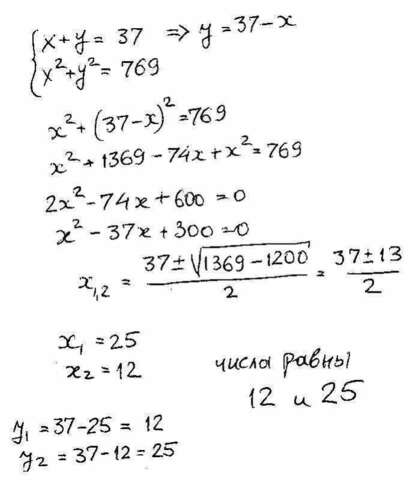 x+y = 37 => y = 37-x
x²+y² = 769
x²+(37-x)² = 769
x²+1369-74x+x² = 769
2x²-74x+600 = 0
x²-37x+300 = 0
x₁,₂ = (37±√(1369-1200))/2 = (37±13)/2
x₁ = 25
x₂ = 12
числа равны
12 и 25
y₁ = 37-25 = 12
y₂ = 37-12 = 25